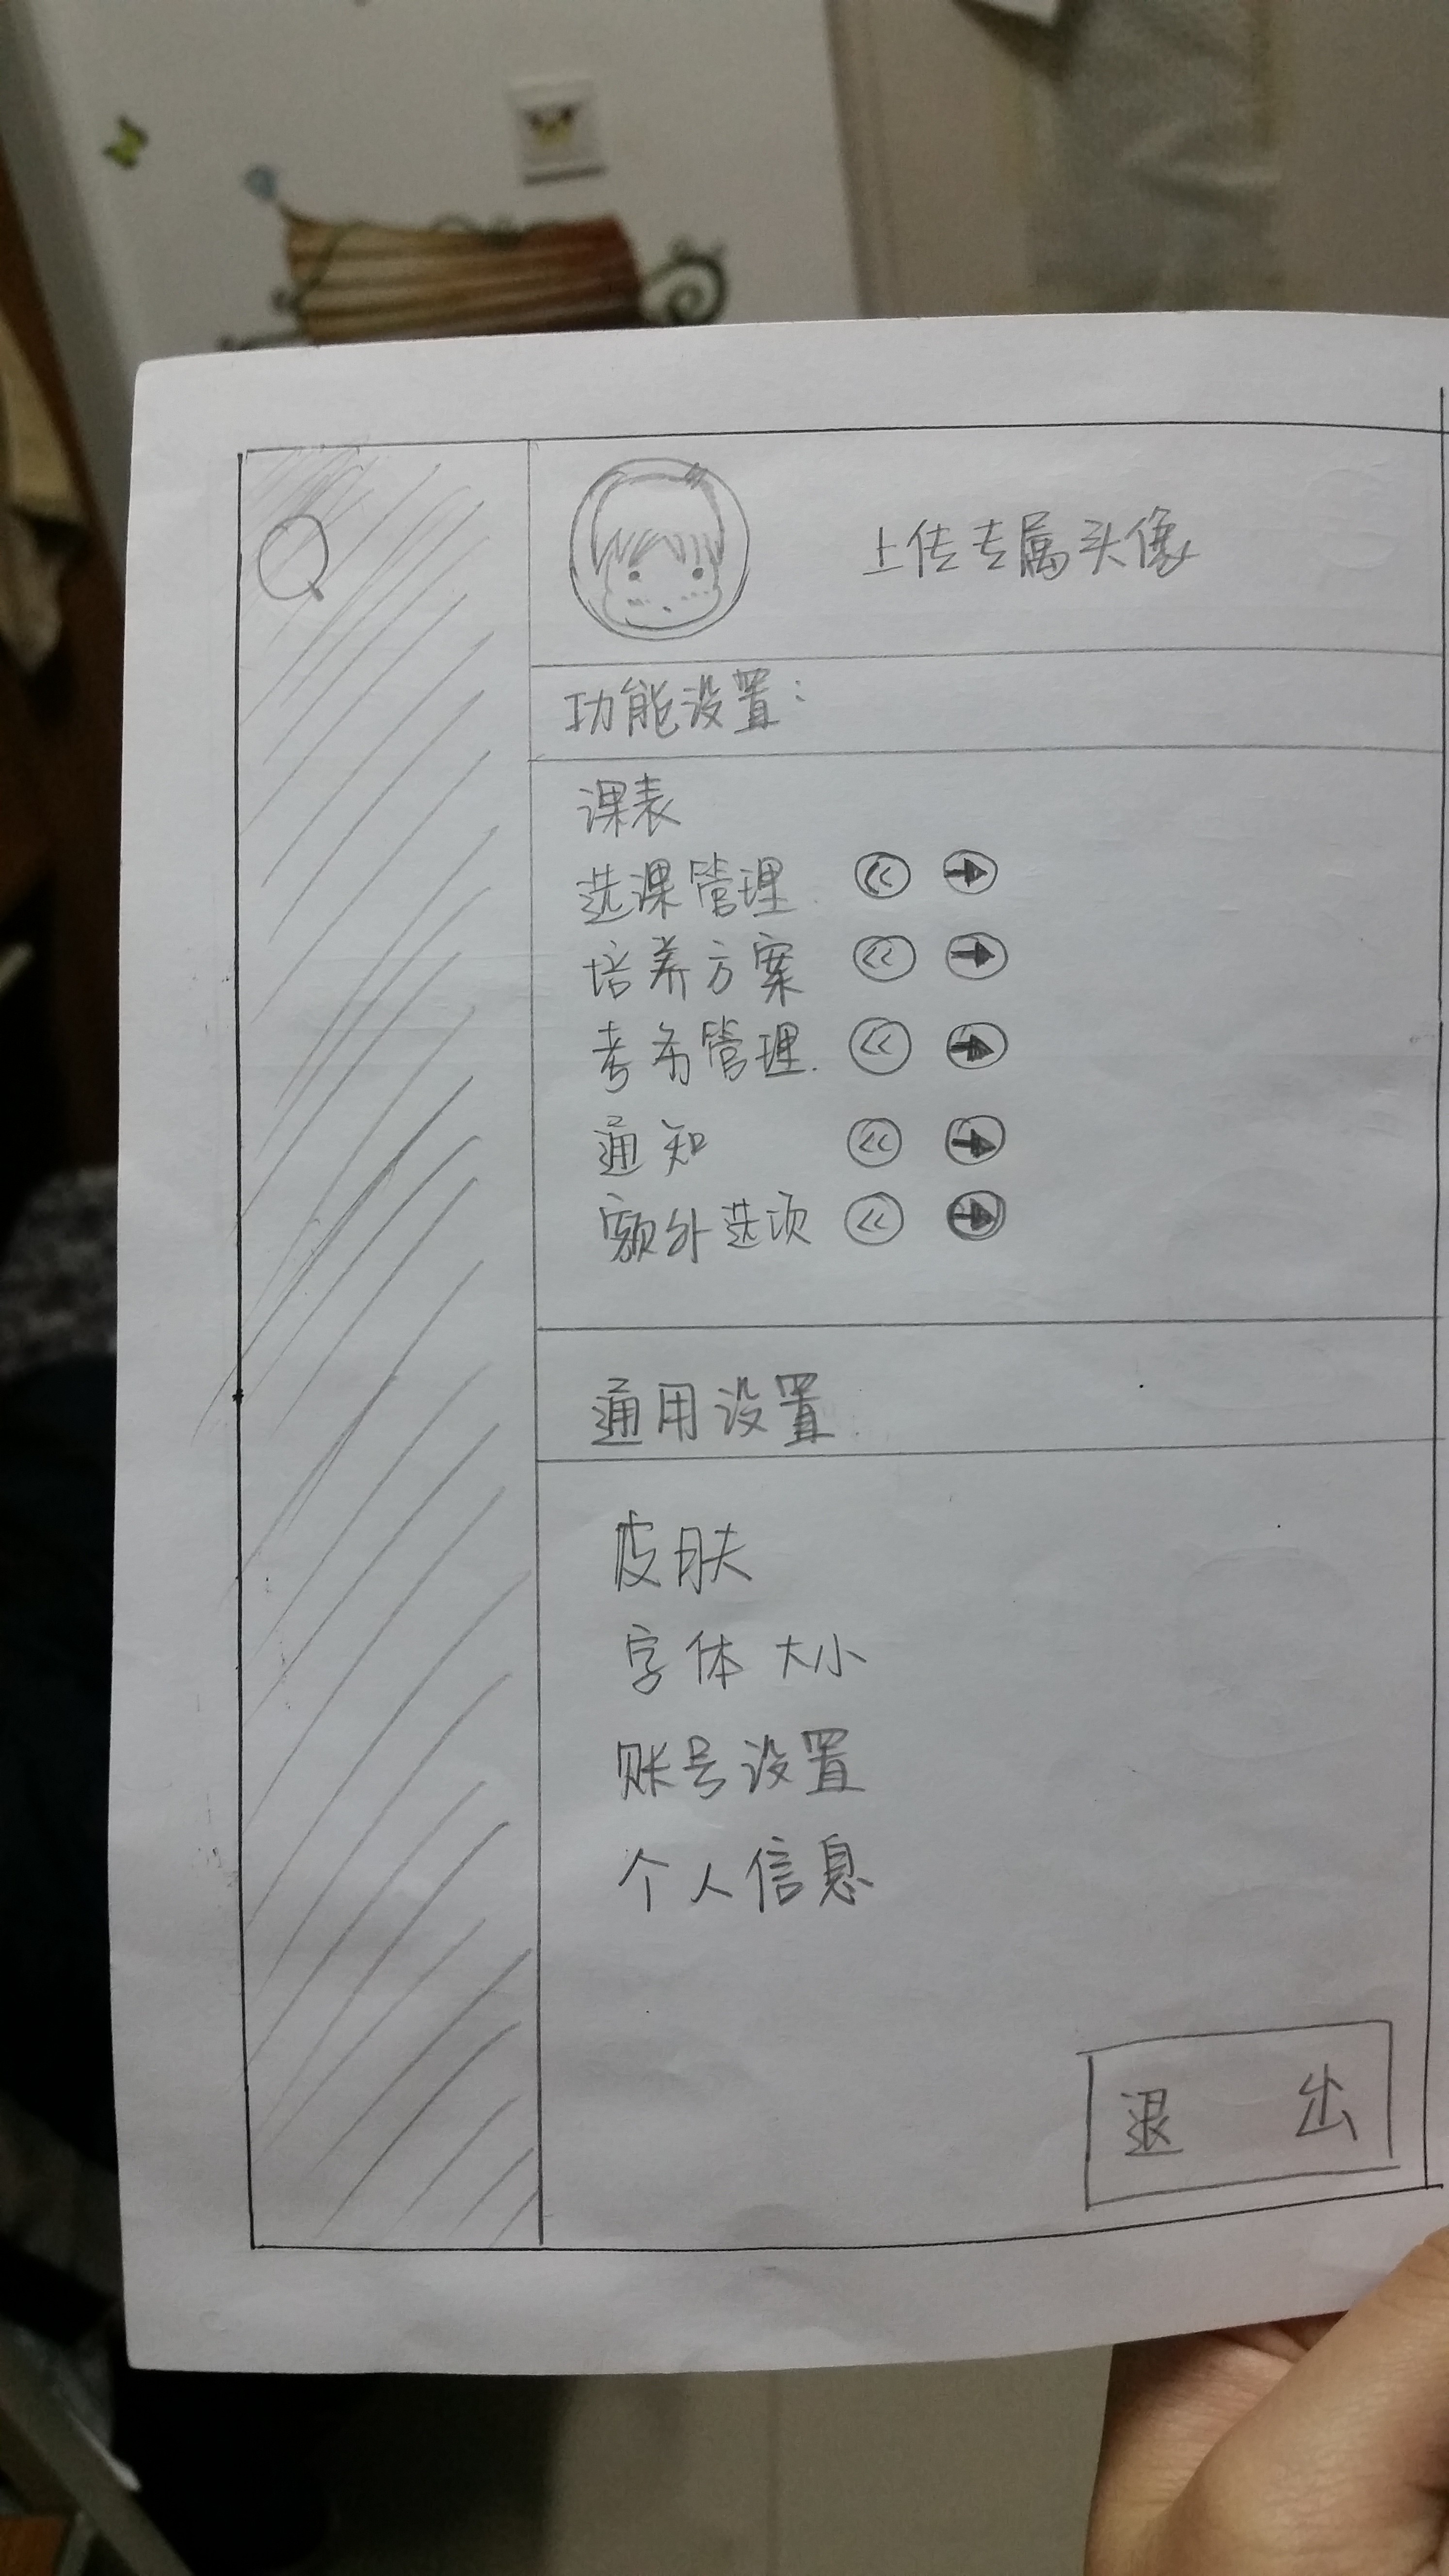 上传专属头像
功能设置:
课表
选课管理
培养方案
考务管理
通知
额外选项
通用设置
皮肤
字体大小
账号设置
个人信息
退出